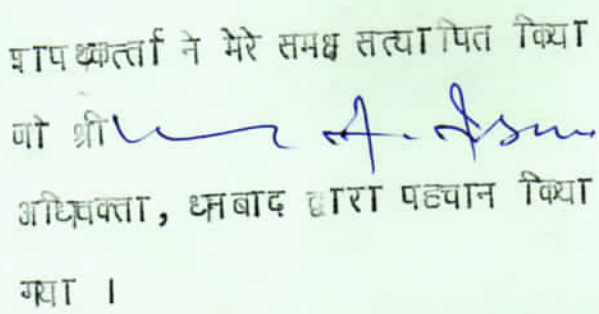 शपथकर्त्ता ने मेरे समक्ष सत्यापित किया
जो श्री
अधिवक्ता, धनबाद द्वारा पहचान किया
गया ।